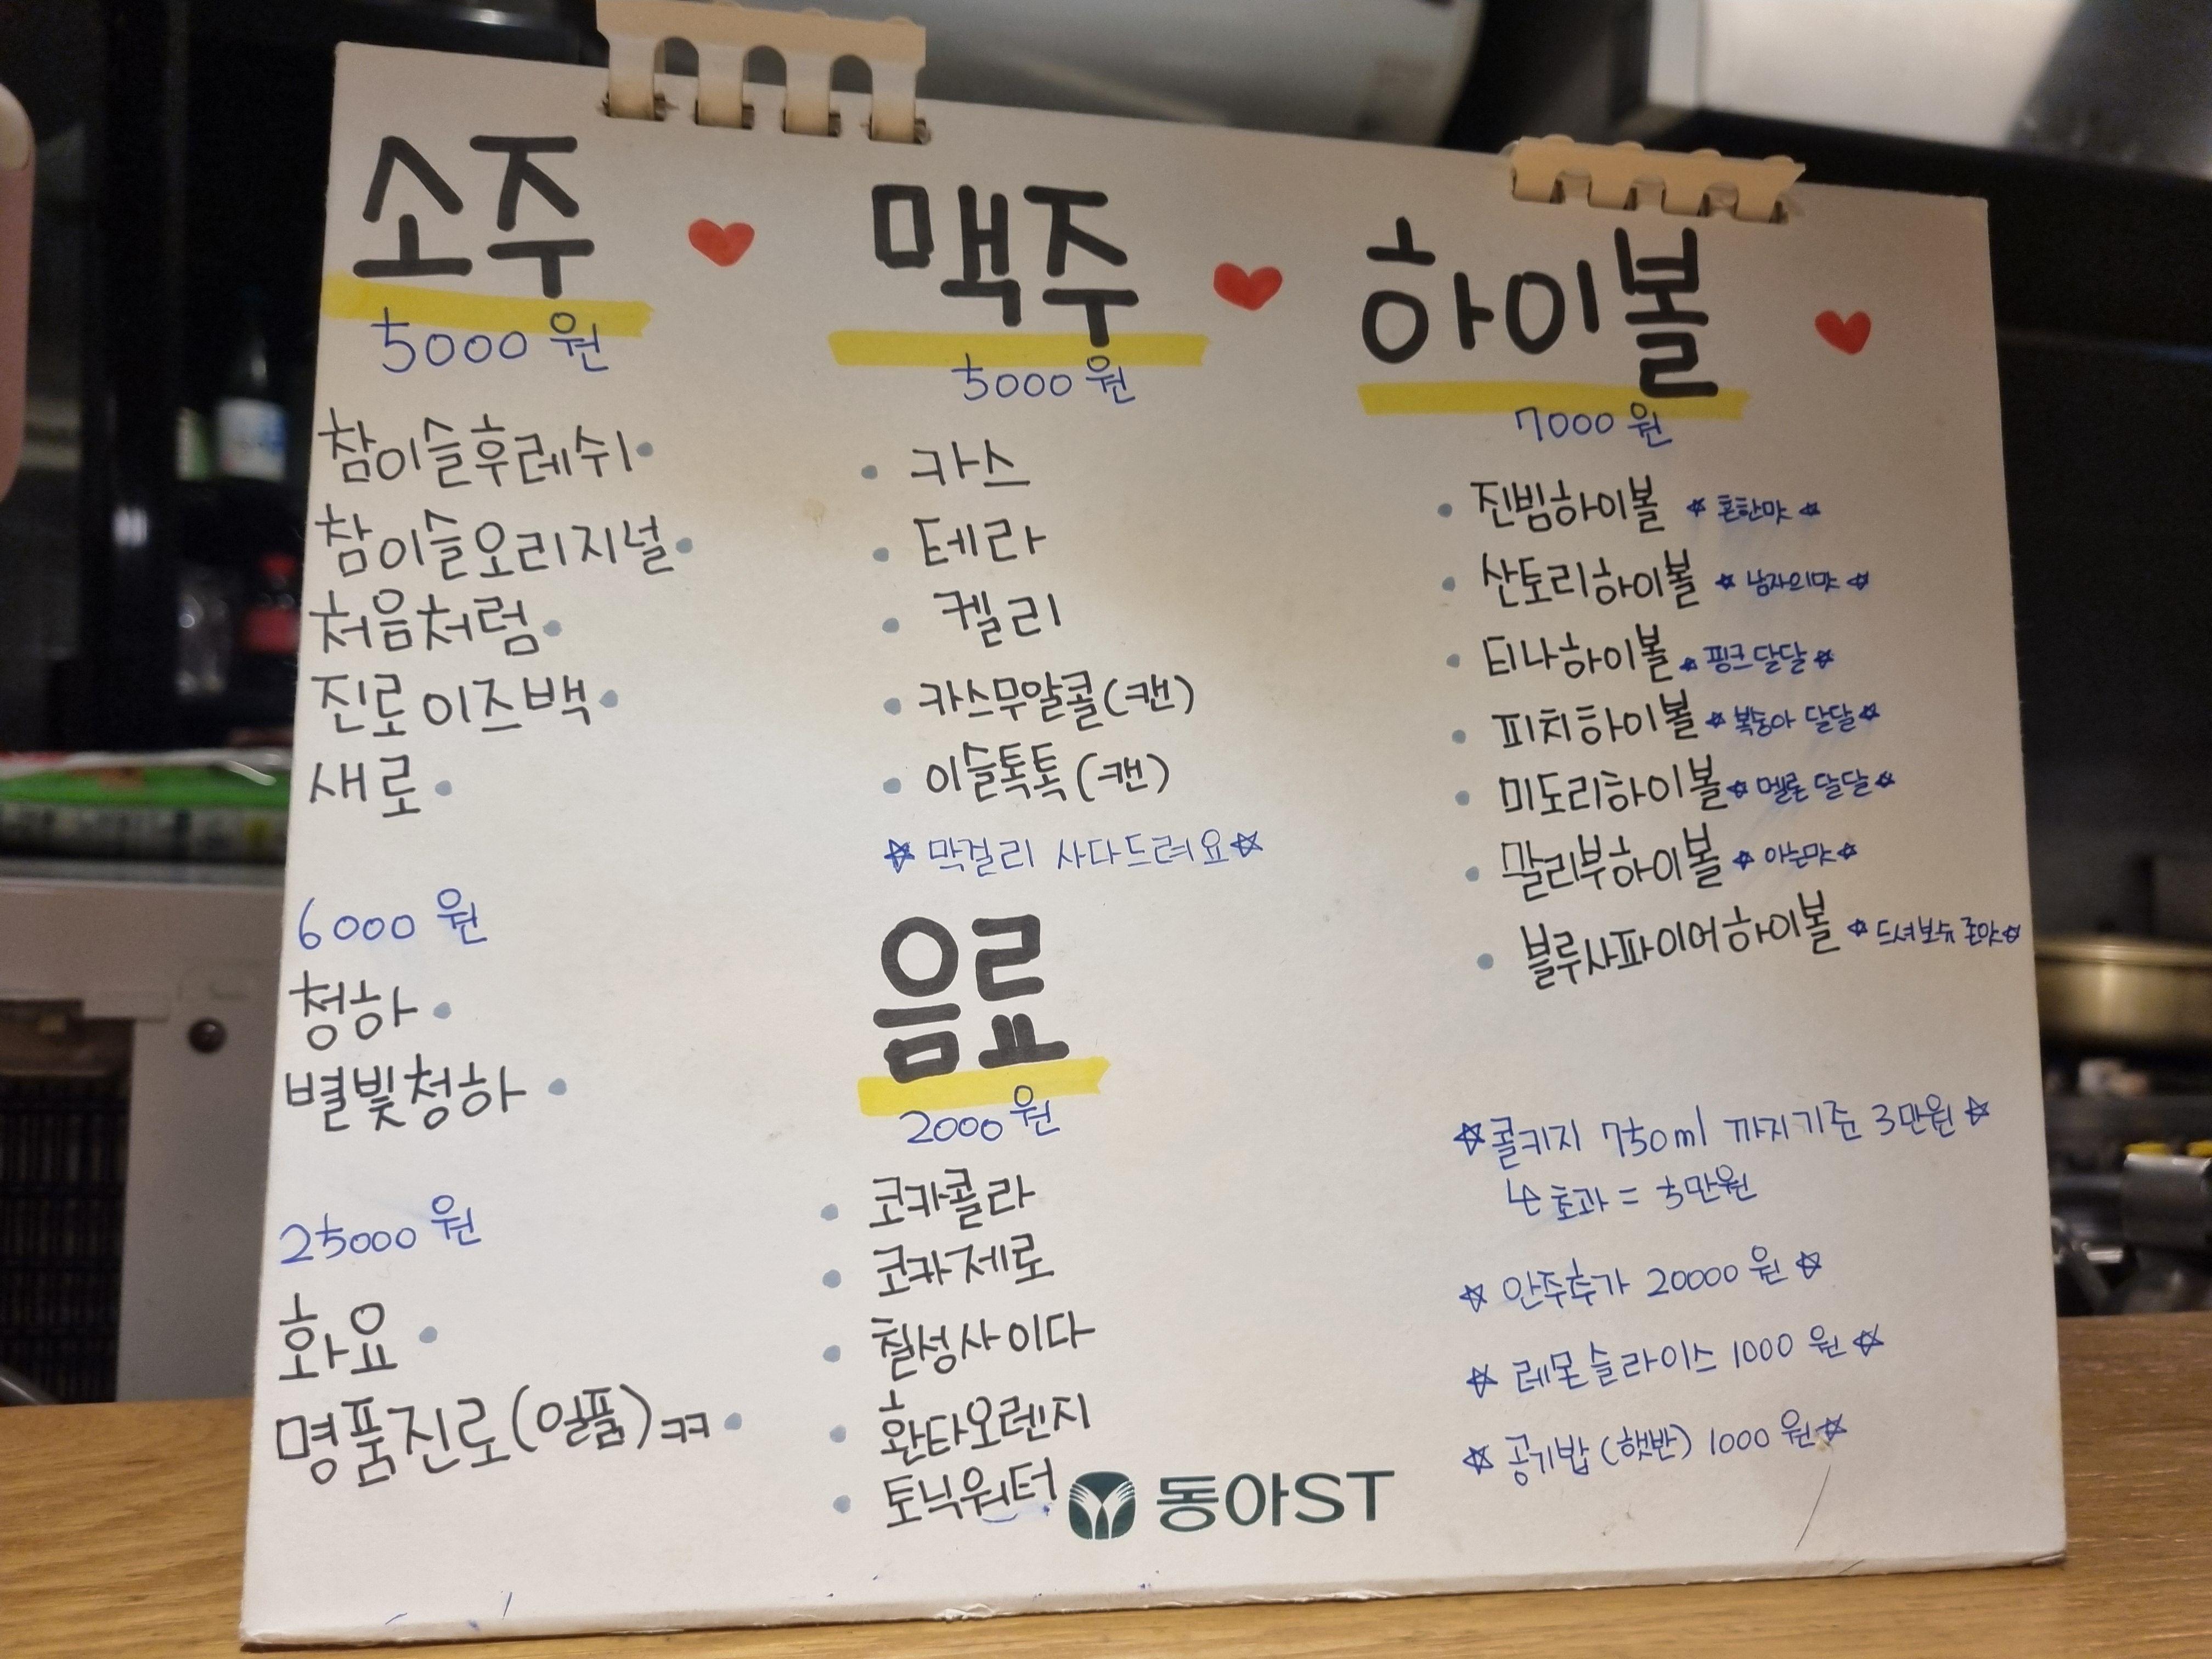 소주
5000 원
참이슬후레쉬
참이슬오리지널
처음처럼
진로이즈백
새로
6000 원
청하
별빛청하
25000 원
화요
명품진로(일품)ㅋㅋ
맥주
5000 원
카스
테라
켈리
카스무알콜(캔)
이슬톡톡(캔)
막걸리 사다드려요
음료
2000 원
코카콜라
코카제로
칠성사이다
환타오렌지
토닉워터
하이볼
7000 원
진빔하이볼 흔한맛
산토리하이볼 남자의맛
티나하이볼 핑크달달
피치하이볼 복숭아 달달
미도리하이볼 멜론 달달
말리부하이볼 아는맛
블루사파이어하이볼 드셔보슈 존맛
콜키지 750ml 까지기준 3만원
초과 = 5만원
안주추가 20000 원
레몬슬라이스 1000 원
공기밥 (햇반) 1000 원
동아ST